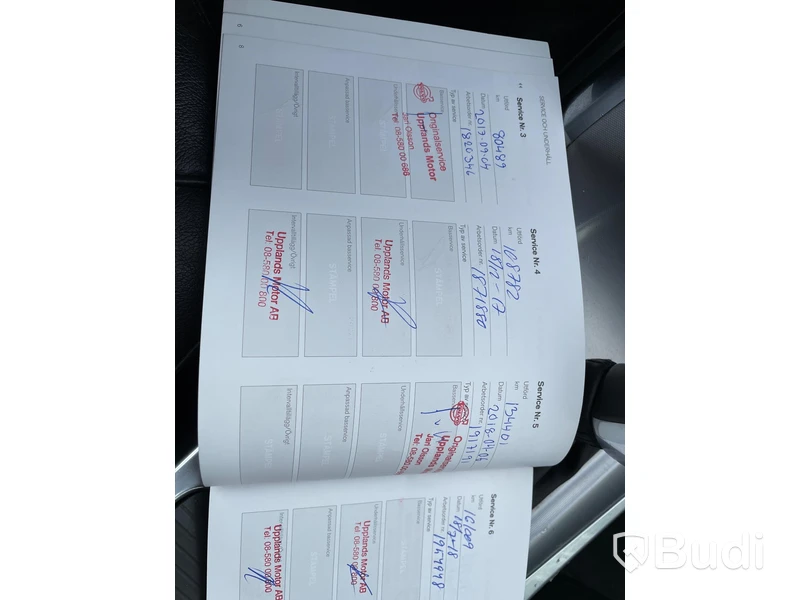 SERVICE OCH UNDERHÅLL
Service Nr. 3
Utförd
km 80489
Datum 2017.09.04
Arbetsorder nr. 1820346
Typ av service
Basservice
Originalservice
Upplands Motor
Jari Olsson
Tel. 08-580 00 686
Anpassad basservice
Intervalltillägg/Övrigt
Service Nr. 4
Utförd
km 108782
Datum 18/12-17
Arbetsorder nr. 1871880
Typ av service
Basservice
STÄMPEL
Underhållsservice
Upplands Motor AB
Tel. 08-580 00 800
Anpassad basservice
STÄMPEL
Intervalltillägg/Övrigt
Upplands Motor AB
Tel. 08-580 00 800
Service Nr. 5
Utförd
km 134401
Datum 2018-04-06
Arbetsorder nr. 1917191
Typ av
Basservice
Originalservice
Upplands
Jari Olsson
Tel. 08-580
Underhållsservice
STÄMPEL
Anpassad basservice
STÄMPEL
Intervalltillägg/Övrigt
STÄMPEL
Service Nr. 6
Utförd
km
Datum 18/7-18
Arbetsorder nr. 1954948
Typ av service
Basservice
STÄMPEL
Upplands Motor AB
Tel. 08-580 00 800
Anpassad basservice
STÄMPEL
Upplands Motor AB
Tel. 08-580 00 800
6
8
Budi